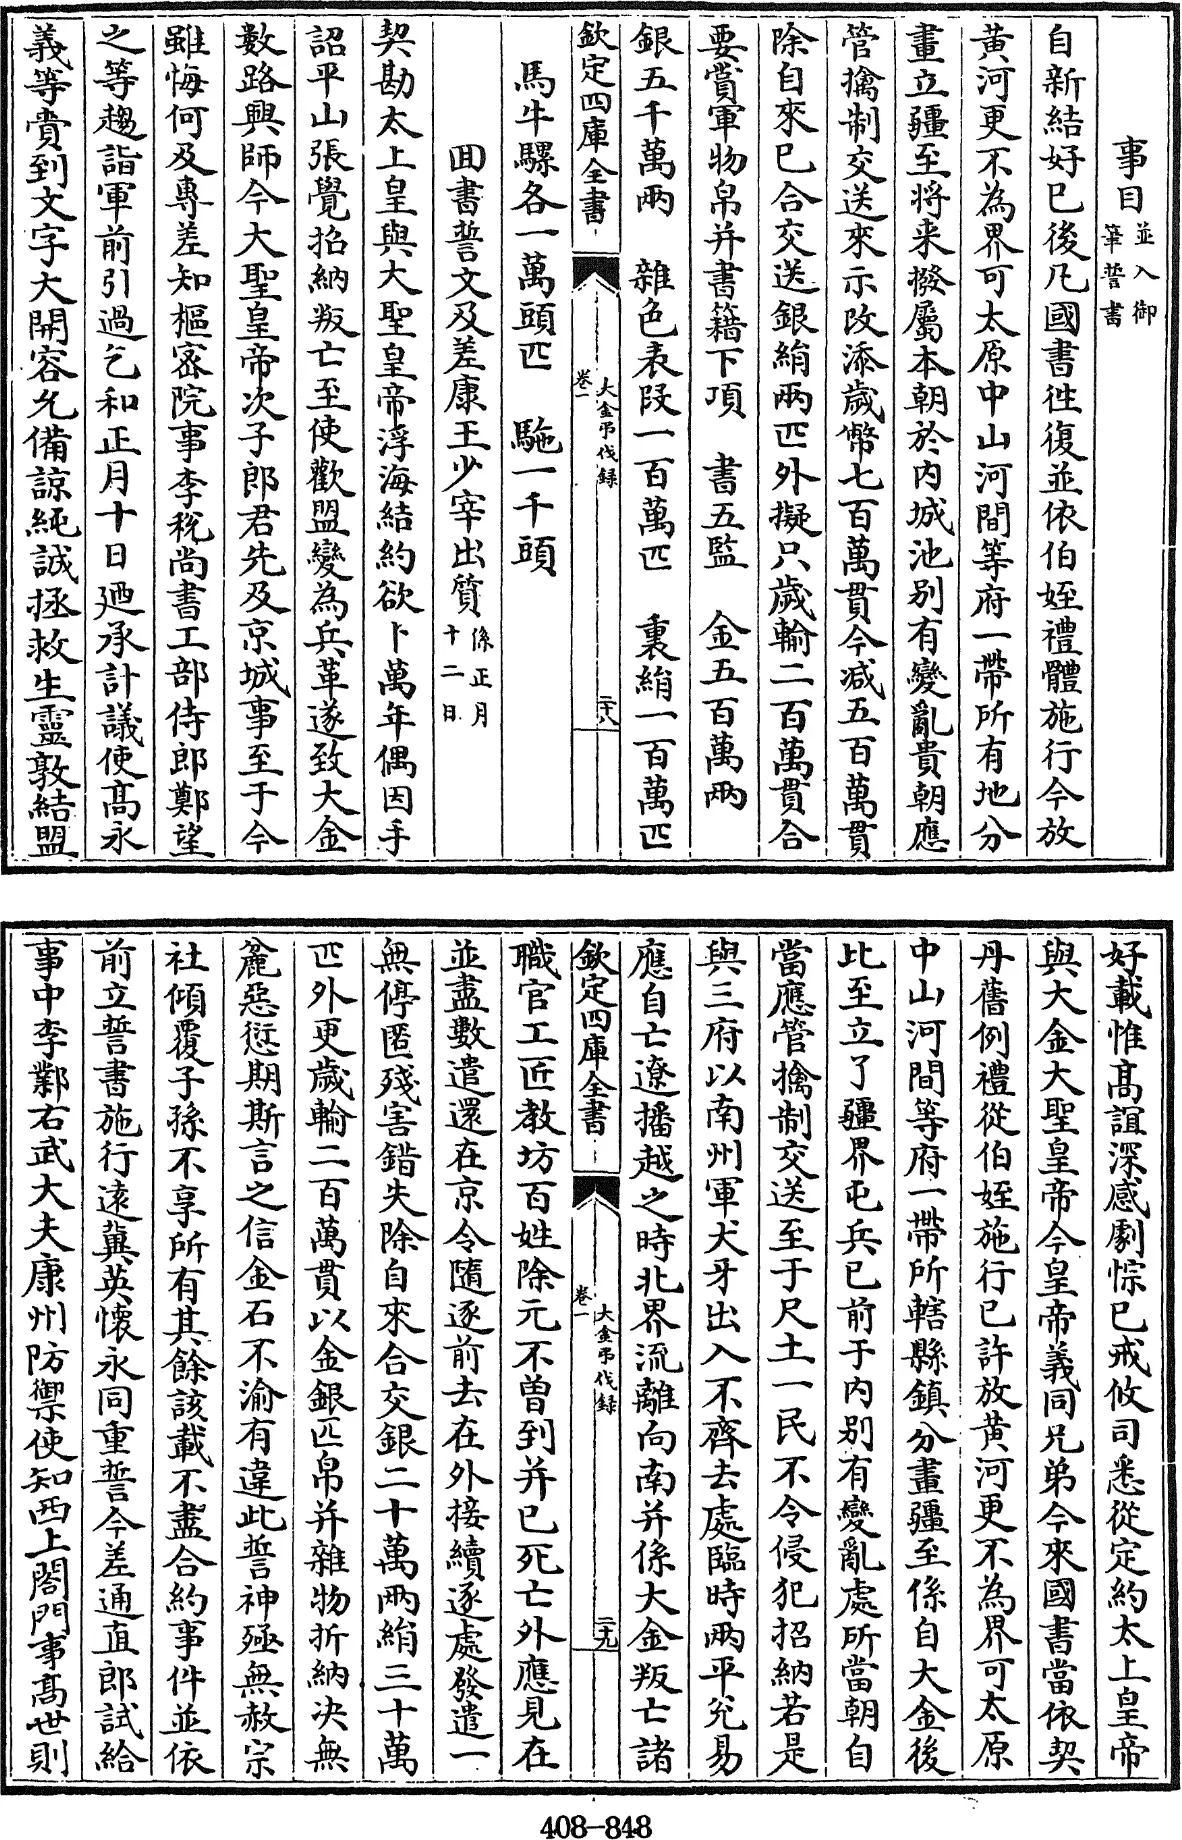 事目並入御筆誓書
自新結好已後凡國書徃復並依伯姪禮體施行今放
黃河更不為界可太原中山河間等府一帶所有地分
畫立疆至將来撥屬本朝於內城池別有變亂貴朝應
管擒制交送來示改添歲幣七百萬貫今減五百萬貫
除自來已合交送銀絹兩匹外擬只歲輸二百萬貫合
要賞軍物帛并書籍下項　書五監　金五百萬兩
銀五千萬兩　雜色表段一百萬匹　裏絹一百萬匹
欽定四庫全書　大金弔伐錄卷一　二十八
馬牛騾各一萬頭匹　駞一千頭
囬書誓文及差康王少宰出質係正月十二日
契勘太上皇與大聖皇帝浮海結約欲卜萬年偶因手
詔平山張覺招納叛亡至使歡盟變為兵革遂致大金
數路興師今大聖皇帝次子郎君先及京城事至于今
雖悔何及專差知樞密院事李梲尚書工部侍郎鄭望
之等趨詣軍前引過乞和正月十日廼承計議使高永
義等賷到文字大開容允備諒純誠拯救生靈敦結盟
好載惟高誼深感劇悰已戒攸司悉從定約太上皇帝
與大金大聖皇帝今皇帝義同兄弟今來國書當依契
丹舊例禮從伯姪施行已許放黄河更不為界可太原
中山河間等府一帶所轄縣鎮分畫疆至係自大金後
比至立了疆界屯兵已前于內別有變亂處所當朝自
當應管擒制交送至于尺土一民不令侵犯招納若是
與三府以南州軍犬牙出入不齊去處臨時兩平兌易
應自亡遼播越之時北界流離向南并係大金叛亡諸
欽定四庫全書　大金弔伐錄卷一　二十九
職官工匠教坊百姓除元不曾到并已死亡外應見在
並盡數遣還在京令隨逐前去在外接續逐處發遣一
無停匿殘害錯失除自來合交銀二十萬兩絹三十萬
匹外更歲輸二百萬貫以金銀匹帛并雜物折納决無
麄惡愆期斯言之信金石不渝有違此誓神殛無赦宗
社傾覆子孫不享所有其餘該載不盡合約事件並依
前立誓書施行遠冀英懷永同重誓今差通直郎試給
事中李鄴右武大夫康州防禦使知西上閤門事高世則
408-848